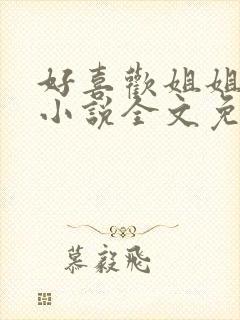 好喜歡姐姐
小說全文免
慕毅飛